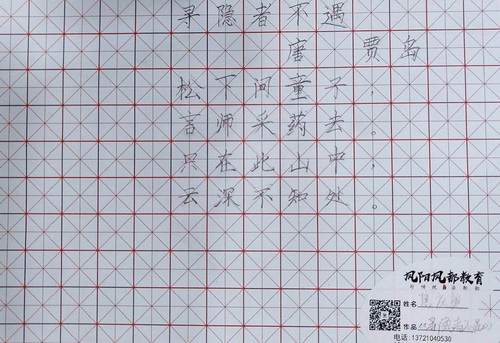 寻隐者不遇
唐 贾岛
松下问童子，
言师采药去。
只在此山中，
云深不知处。
凤阳凤都教育
姓名
作品
电话:13721040530